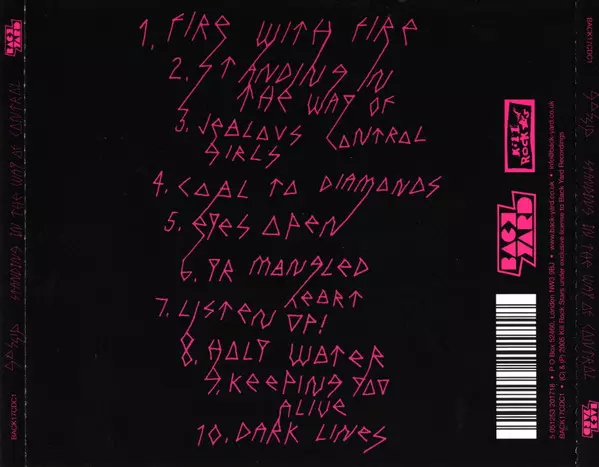 1. FIRE WITH FIRE
2. STANDING IN
THE WAY OF
CONTROL
3. JEALOUS
GIRLS
4. COAL TO DIAMONDS
5. EYES OPEN
6. YR MANGLED
HEART
7. LISTEN UP!
8. HOLY WATER
9. KEEPING YOU
ALIVE
10. DARK LINES
BACK
YARD
STANDING IN THE WAY OF CONTROL
BACK17CDC1
KILL
ROCK
BACK
YARD
5 051253 201714 • P O Box 52460, London NW3 9BJ • www.back-yard.co.uk • info@back-yard.co.uk
BACK17CDC1 • (C) & (P) 2005 Kill Rock Stars under exclusive license to Back Yard Recordings
BACK17CDC1
STANDING IN THE WAY OF CONTROL
BACK
YARD